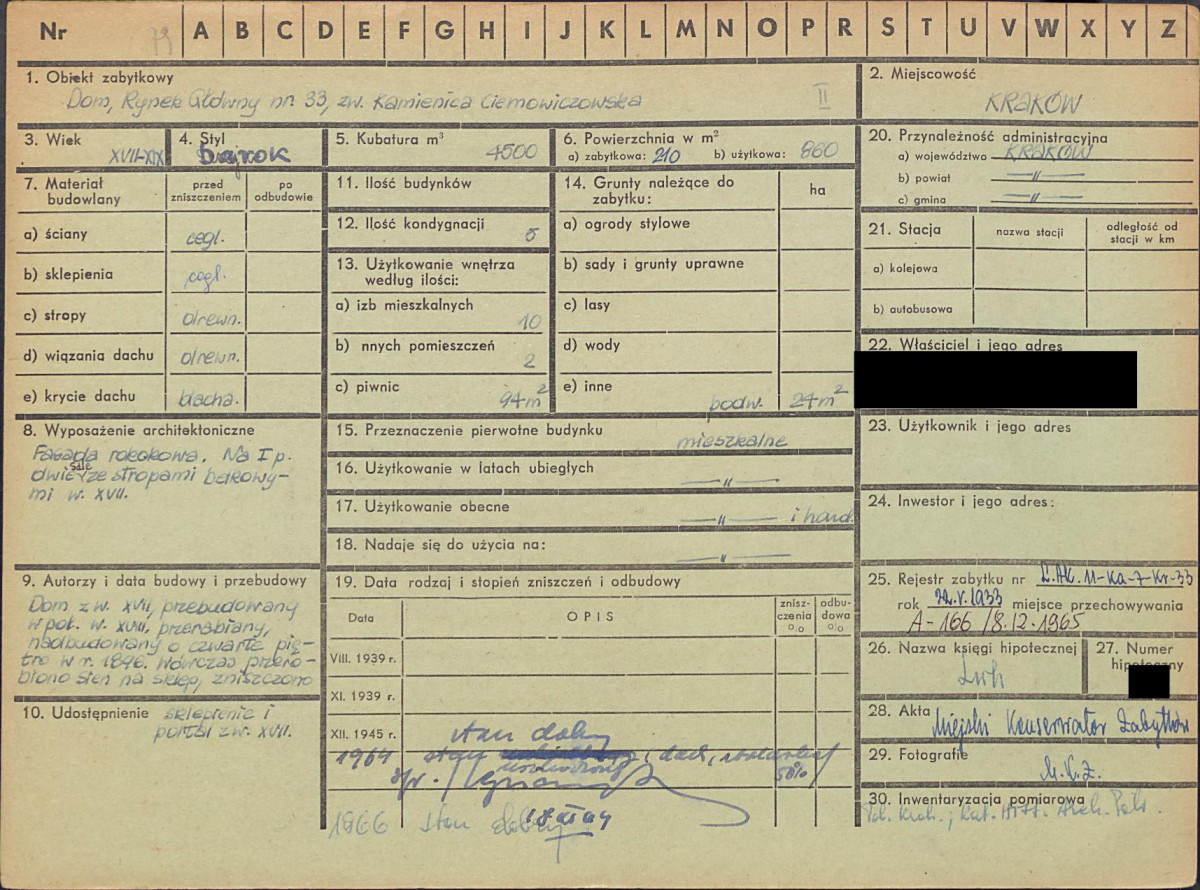 Nr 79 A B C D E F G H I J K L M N O P R S T U V W X Y Z
1. Obiekt zabytkowy
Dom, Rynek Główny nr. 33, zw. Kamienica Ciemowiczowska II
2. Miejscowość
KRAKÓW
3. Wiek
XVII-XIX
4. Styl
barok
5. Kubatura m³
4500
6. Powierzchnia w m²
a) zabytkowa: 210 b) użytkowa: 860
20. Przynależność administracyjna
a) województwo KRAKÓW
b) powiat —"—
c) gmina —"—
7. Materiał budowlany
przed zniszczeniem
po odbudowie
a) ściany cegl.
b) sklepienia cegl.
c) stropy drewn.
d) wiązania dachu drewn.
e) krycie dachu blacha.
11. Ilość budynków
12. Ilość kondygnacji 5
13. Użytkowanie wnętrza
według ilości:
a) izb mieszkalnych
10
b) nnych pomieszczeń
2
c) piwnic
94m²
14. Grunty należące do
zabytku:
ha
a) ogrody stylowe
b) sady i grunty uprawne
c) lasy
d) wody
e) inne
podw. 24m²
21. Stacja
nazwa stacji
odległość od
stacji w km
a) kolejowa
b) autobusowa
22. Właściciel i jego adres
8. Wyposażenie architektoniczne
Fasada rokokowa. Na I p.
dwie sale ze stropami belkowy-
mi w. XVII.
15. Przeznaczenie pierwotne budynku
mieszkalne
16. Użytkowanie w latach ubiegłych
—"—
17. Użytkowanie obecne
—"— i hand.
18. Nadaje się do użycia na:
—"—
23. Użytkownik i jego adres
24. Inwestor i jego adres:
9. Autorzy i data budowy i przebudowy
Dom z w. XVII, przebudowany
w poł. w. XVIII, przerabiany,
nadbudowany o czwarte pię-
tro w r. 1896. Wówczas przero-
biono sień na sklep, zniszczono
10. Udostępnienie sklepienie i
portal z w. XVII.
19. Data rodzaj i stopień zniszczeń i odbudowy
Data
OPIS
znisz-
czenia
o/o
odbu-
dowa
o/o
VIII. 1939 r.
XI. 1939 r.
XII. 1945 r. stan dobry
1964 stan dach,
50%
1966 stan dobry
25. Rejestr zabytku nr L.AK.11-Ka-7-Kr-33
rok 22.V.1933 miejsce przechowywania
A-166 /8.12.1965
26. Nazwa księgi hipotecznej
Lwh
27. Numer
hipoteczny
28. Akta Miejski Konserwator Zabytków
29. Fotografie
M.K.Z.
30. Inwentaryzacja pomiarowa
Arch. Pol.